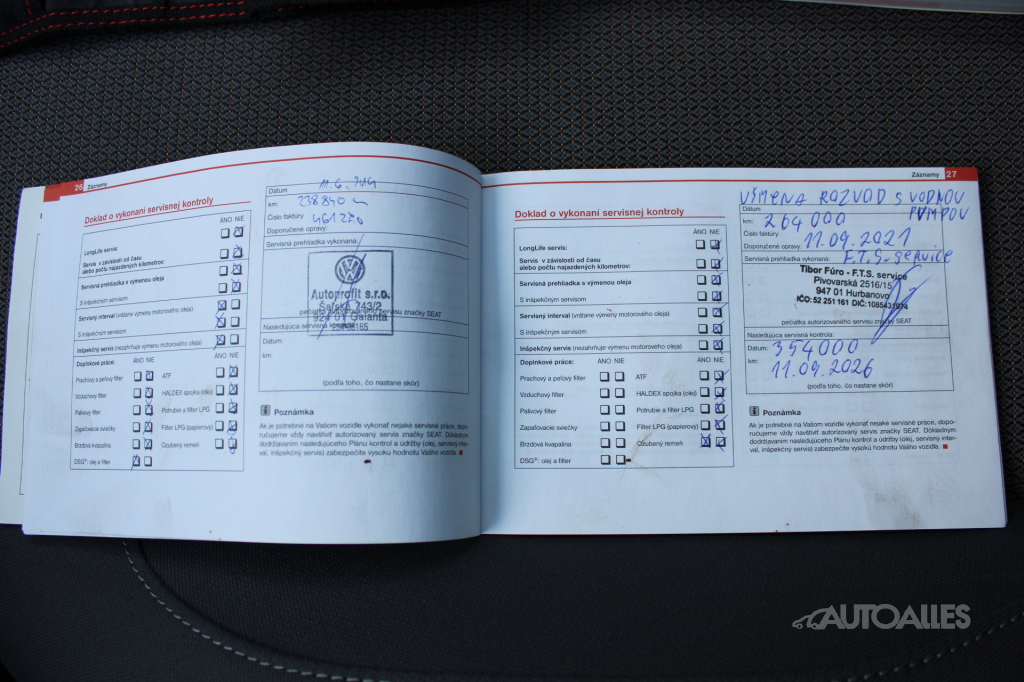 26 Záznamy
Doklad o vykonaní servisnej kontroly
ÁNO NIE
LongLife servis:
Servis v závislosti od času
alebo počtu najazdených kilometrov:
Servisná prehliadka s výmenou oleja
S inšpekčným servisom
Servisný interval (vrátane výmeny motorového oleja)
S inšpekčným servisom
Inšpekčný servis (nezahŕňuje výmenu motorového oleja)
Doplnkové práce: ÁNO NIE ÁNO NIE
Prachový a peľový filter ATF
Vzduchový filter HALDEX spojka (olej)
Palivový filter Potrubie a filter LPG
Zapaľovacie sviečky Filter LPG (papierový)
Brzdová kvapalina Ozubený remeň
DSG®: olej a filter
Dátum
km: 238840
Číslo faktúry
Doporučené opravy:
Servisná prehliadka vykonaná:
Autoprofit s.r.o.
Šaľská 743/2
924 01 Galanta
pečiatka autorizovaného servisu značky SEAT
Nasledujúca servisná kontrola:
Dátum:
km:
(podľa toho, čo nastane skôr)
Poznámka
Ak je potrebné na Vašom vozidle vykonať nejaké servisné práce, dopo-
ručujeme vždy navštíviť autorizovaný servis značky SEAT. Dôkladným
dodržiavaním nasledujúceho Plánu kontrol a údržby (olej, servisný inter-
val, inšpekčný servis) zabezpečíte vysokú hodnotu Vášho vozidla.
Záznamy 27
Doklad o vykonaní servisnej kontroly
ÁNO NIE
LongLife servis:
Servis v závislosti od času
alebo počtu najazdených kilometrov:
Servisná prehliadka s výmenou oleja
S inšpekčným servisom
Servisný interval (vrátane výmeny motorového oleja)
S inšpekčným servisom
Inšpekčný servis (nezahŕňuje výmenu motorového oleja)
Doplnkové práce: ÁNO NIE ÁNO NIE
Prachový a peľový filter ATF
Vzduchový filter HALDEX spojka (olej)
Palivový filter Potrubie a filter LPG
Zapaľovacie sviečky Filter LPG (papierový)
Brzdová kvapalina Ozubený remeň
DSG®: olej a filter
VÝMENA ROZVOD S VODNOU
PUMPOU
Dátum
km: 264000
Číslo faktúry
Doporučené opravy: 11.09.2021
Servisná prehliadka vykonaná: F.T.S. service
Tibor Fúro - F.T.S. service
Pivovarská 2516/15
947 01 Hurbanovo
IČO: 52 251 161 DIČ:
pečiatka autorizovaného servisu značky SEAT
Nasledujúca servisná kontrola:
Dátum: 354000
km: 11.09.2026
(podľa toho, čo nastane skôr)
Poznámka
Ak je potrebné na Vašom vozidle vykonať nejaké servisné práce, dopo-
ručujeme vždy navštíviť autorizovaný servis značky SEAT. Dôkladným
dodržiavaním nasledujúceho Plánu kontrol a údržby (olej, servisný inter-
val, inšpekčný servis) zabezpečíte vysokú hodnotu Vášho vozidla.
AUTOALLES